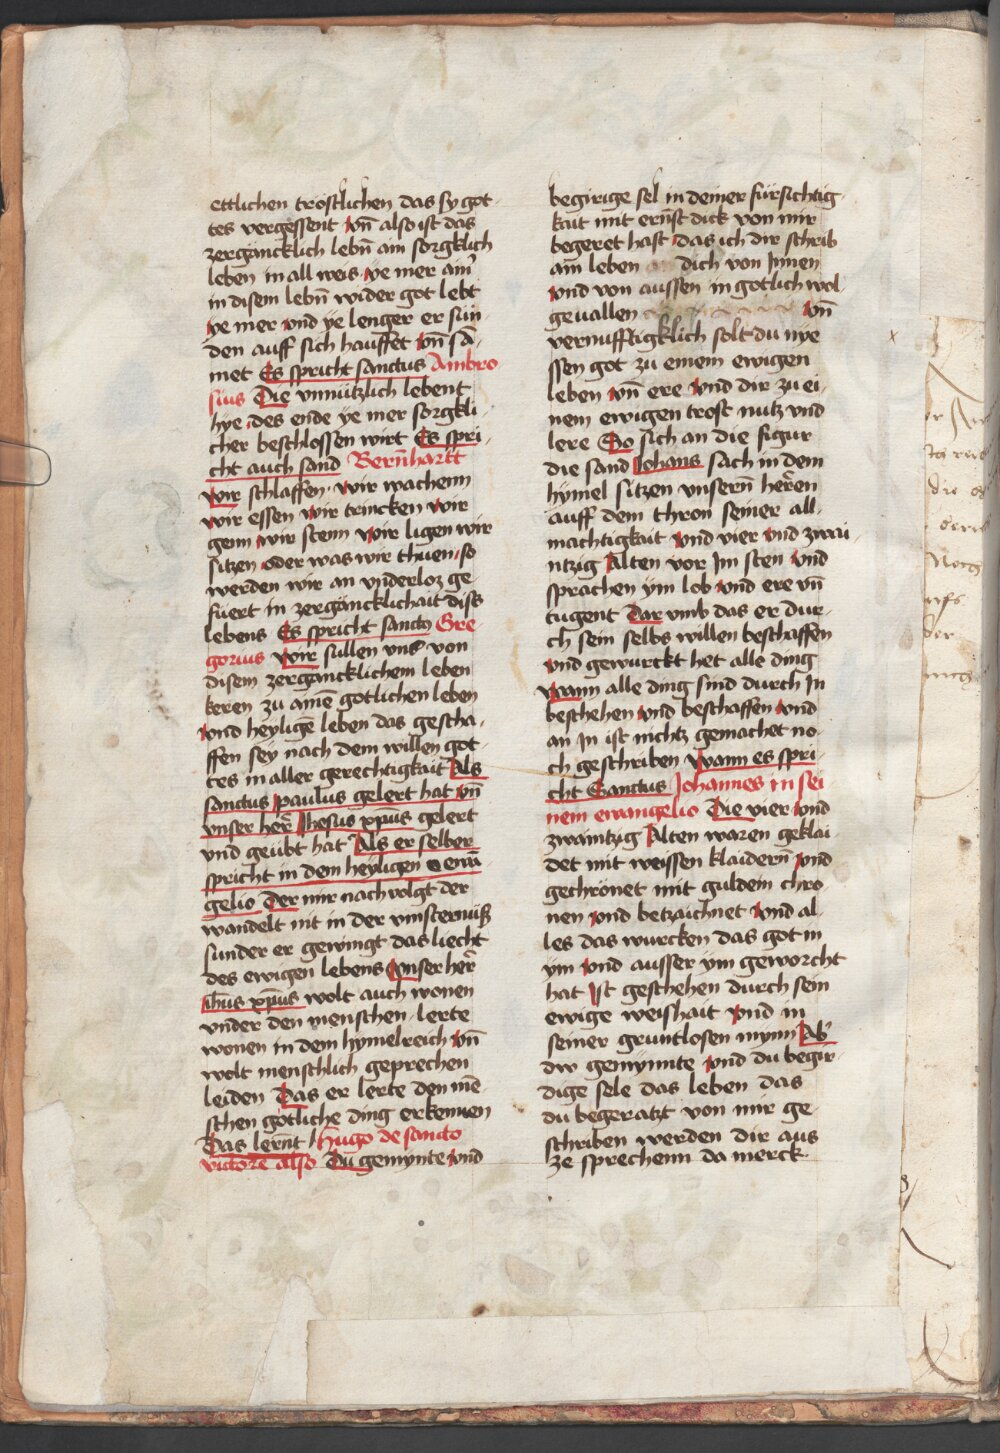 ettlichen tröstlichen das sy got-
tes vergessent vn̄ also ist das
zergäncklich lebn̄ am sorgklich
leben in all weis ye mer ain'
in disem lebn̄ wider got lebt
ye mer vnd ye lenger er sün-
den auff sich hauffet vn̄ sā-
met Es spricht sanctus Ambro
sius Die vnnützlich lebent
hye des ende ye mer sorgkli-
cher beschlossen wirt Es spri-
cht auch sand Bern̄hartt
wir schlaffen wir wachenn
wir essen wir trincken wir
genn wir stenn wir ligen wir
sitzen oder was wir thuen so
werden wir an vnderloz ge-
füert in zergäncklichait diss
lebens Es spricht sancto Gre-
gorius wir süllen vns von
disem zergäncklichem leben
keren zu amē gotlichen leben
vnd heyligē leben das gescha-
ffen sey nach dem willen got-
tes in aller gerechtigkait Als
sanctus paulus gelert hat vn̄
vnser her̄ Jhesus xp̄us gelert
vnd geübt hat Als er selber
spricht in dem heyligen ewā
gelio Der mir nach volgt der
wandelt nit in der vinsternüß
sunder er gewingt das liecht
des ewigen lebens vnser her̄
ih̄us xp̄us wolt auch wonen
vnder den menschen lerte
wonen in dem hymelreich vn̄
wolt menschlich geprechen
leiden Das er lerte den mē
schen götliche ding erkennen
Das lern̄t Hugo de sancto
victore also Du gemynte vnd
begirige sel in deiner fürsichtig-
kait mit ern̄st dick von mir
begeret hast das ich dir schrib
am leben dich von Jnnen
vnd von aussen in gotlich wol
geuallen vn̄
vernufftigklich solt du nye
ssen got zu einem ewigen
leben vn̄ ere vnd dir zu ei-
nem ewigen trost nutz vnd
lere So sich an die figur
die sand Johans sach in dem
hymel sitzen vnsern̄ her̄en
auff dem thron seiner all-
machtigkait vnd vier vnd zwai-
ntzig Alten vor Jm sten vnd
sprachen ym lob vnd ere vn̄
tugent Dar vmb das er dur-
ch sein selbs willen beschaffen
vnd gewurckt het alle ding
wann alle ding sind durch Jn
beschehen vnd beschaffen vnd
an Jn ist nichtz gemachet no-
ch geschriben wann es spri-
cht Sanctus Johannes in sei
nem ewangelio Die vier vnd
zwaintzig Alten waren geklai-
det mit weissen klaidern̄ vnd
gechrönet mit guldein chro-
nen vnd betzaichnet vnd al-
les das wurcken das got in
ym vnd ausser ym geworcht
hat Jst geschehen durch sein
ewige weishait vnd in
seiner gruntlosen mynn Ab'
dw gemynnte vnd du begir-
dige sele das leben das
du begeratzt von mir ge-
schriben werden dir aus
ze sprechenn da merck